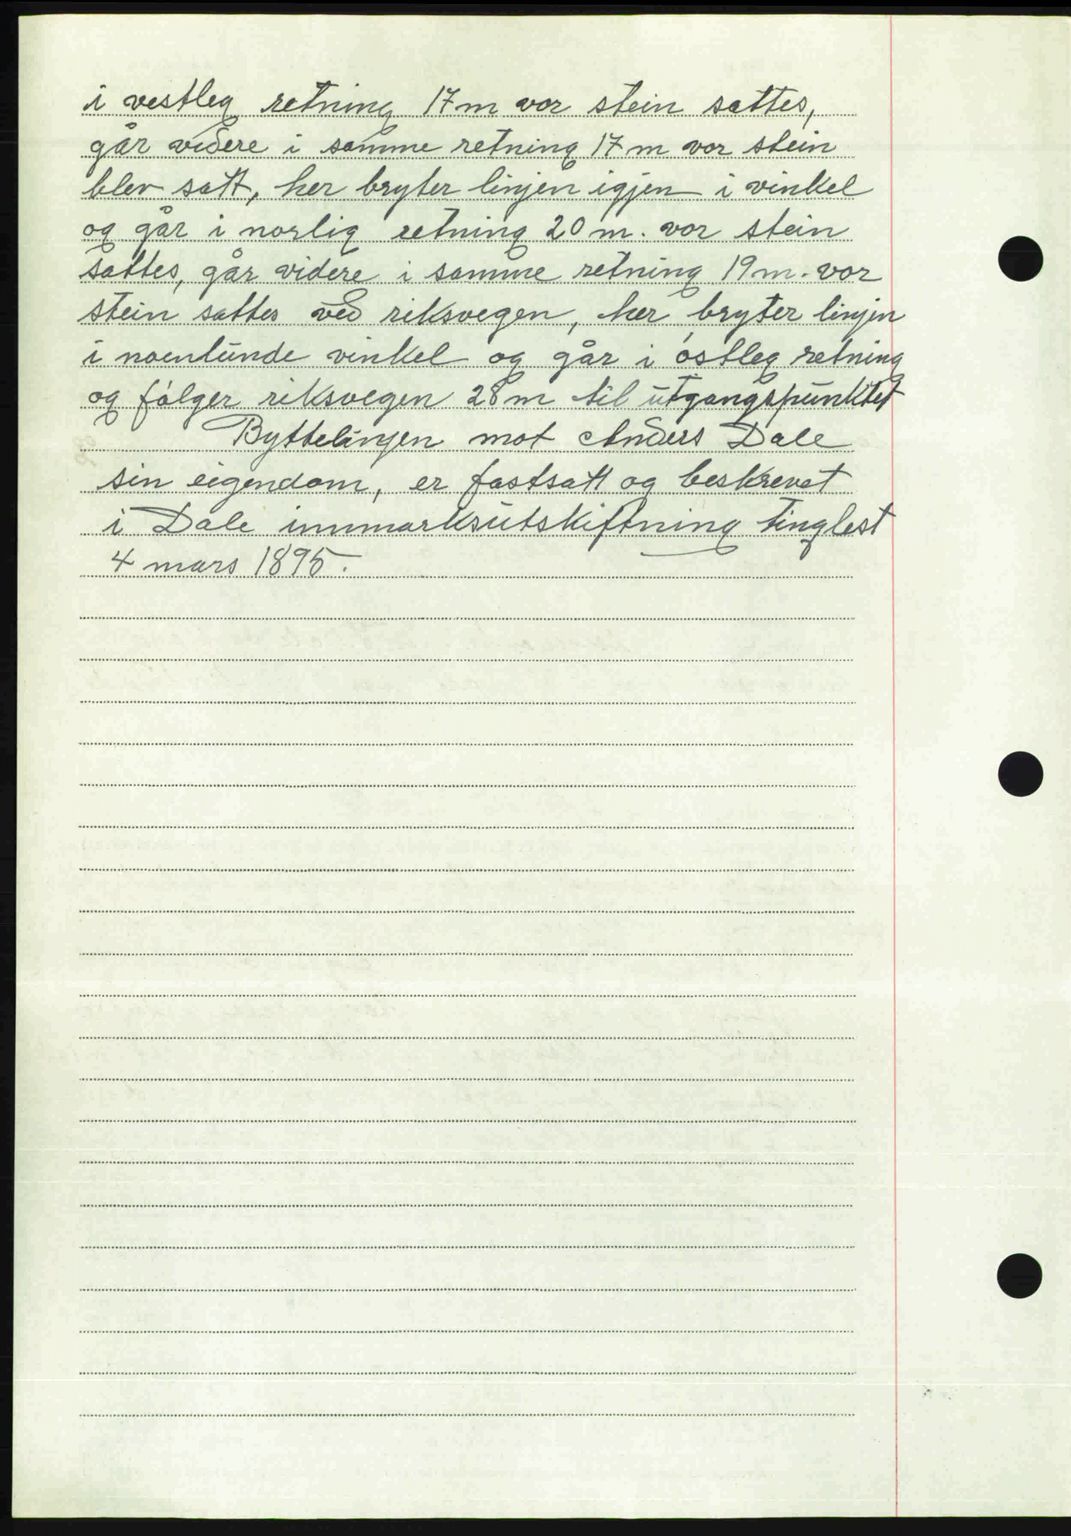 i vestleg retning 17 m vor stein sattes,
går videre i samme retning 17 m vor stein
blev satt, her bryter linjen igjen i vinkel
og går i norlig retning 20 m. vor stein
sattes, går videre i samme retning 19 m. vor
stein sattes ved riksvegen, her bryter linjen
i noenlunde vinkel og går i óstleg retning
og fólger riksvegen 28 m til utgangspunktet
Byttelinjen mot Anders Dale
sin eigendom, er fastsatt og beskrevet
i Dale innmarksutskiftning tinglest
4 mars 1895.